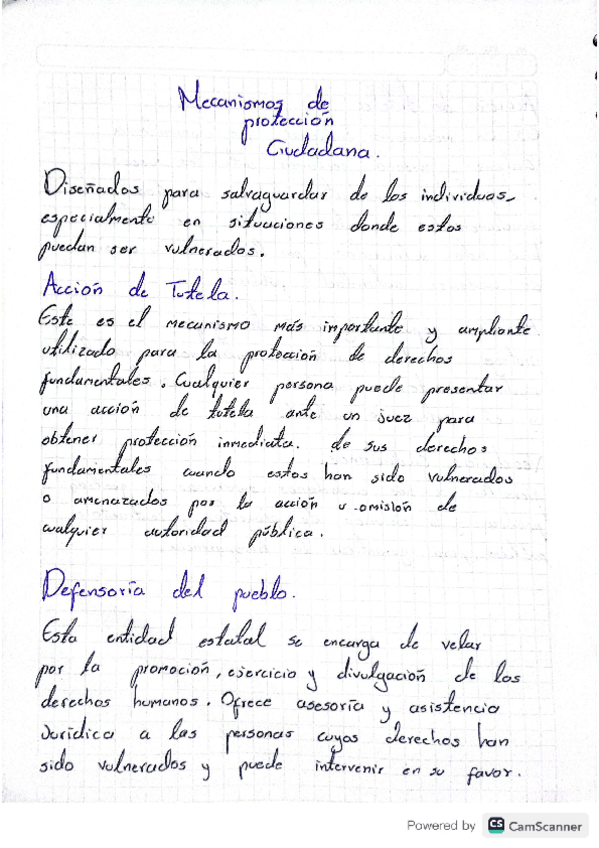 Mecanismos de
protección
Ciudadana.
Diseñados para salvaguardar de los individuos,
especialmente en situaciones donde estos
puedan ser vulnerados.
Acción de Tutela.
Este es el mecanismo más importante y ampliante
utilizado para la protección de derechos
fundamentales. Cualquier persona puede presentar
una acción de tutela ante un juez para
obtener protección inmediata. de sus derechos
fundamentales cuando estos han sido vulnerados
o amenazados por la acción u omisión de
cualquier autoridad pública.
Defensoría del pueblo.
Esta entidad estatal se encarga de velar
por la promoción, ejercicio y divulgación de los
derechos humanos. Ofrece asesoría y asistencia
Jurídica a las personas cuyos derechos han
sido vulnerados y puede intervenir en su favor.
Powered by CS CamScanner